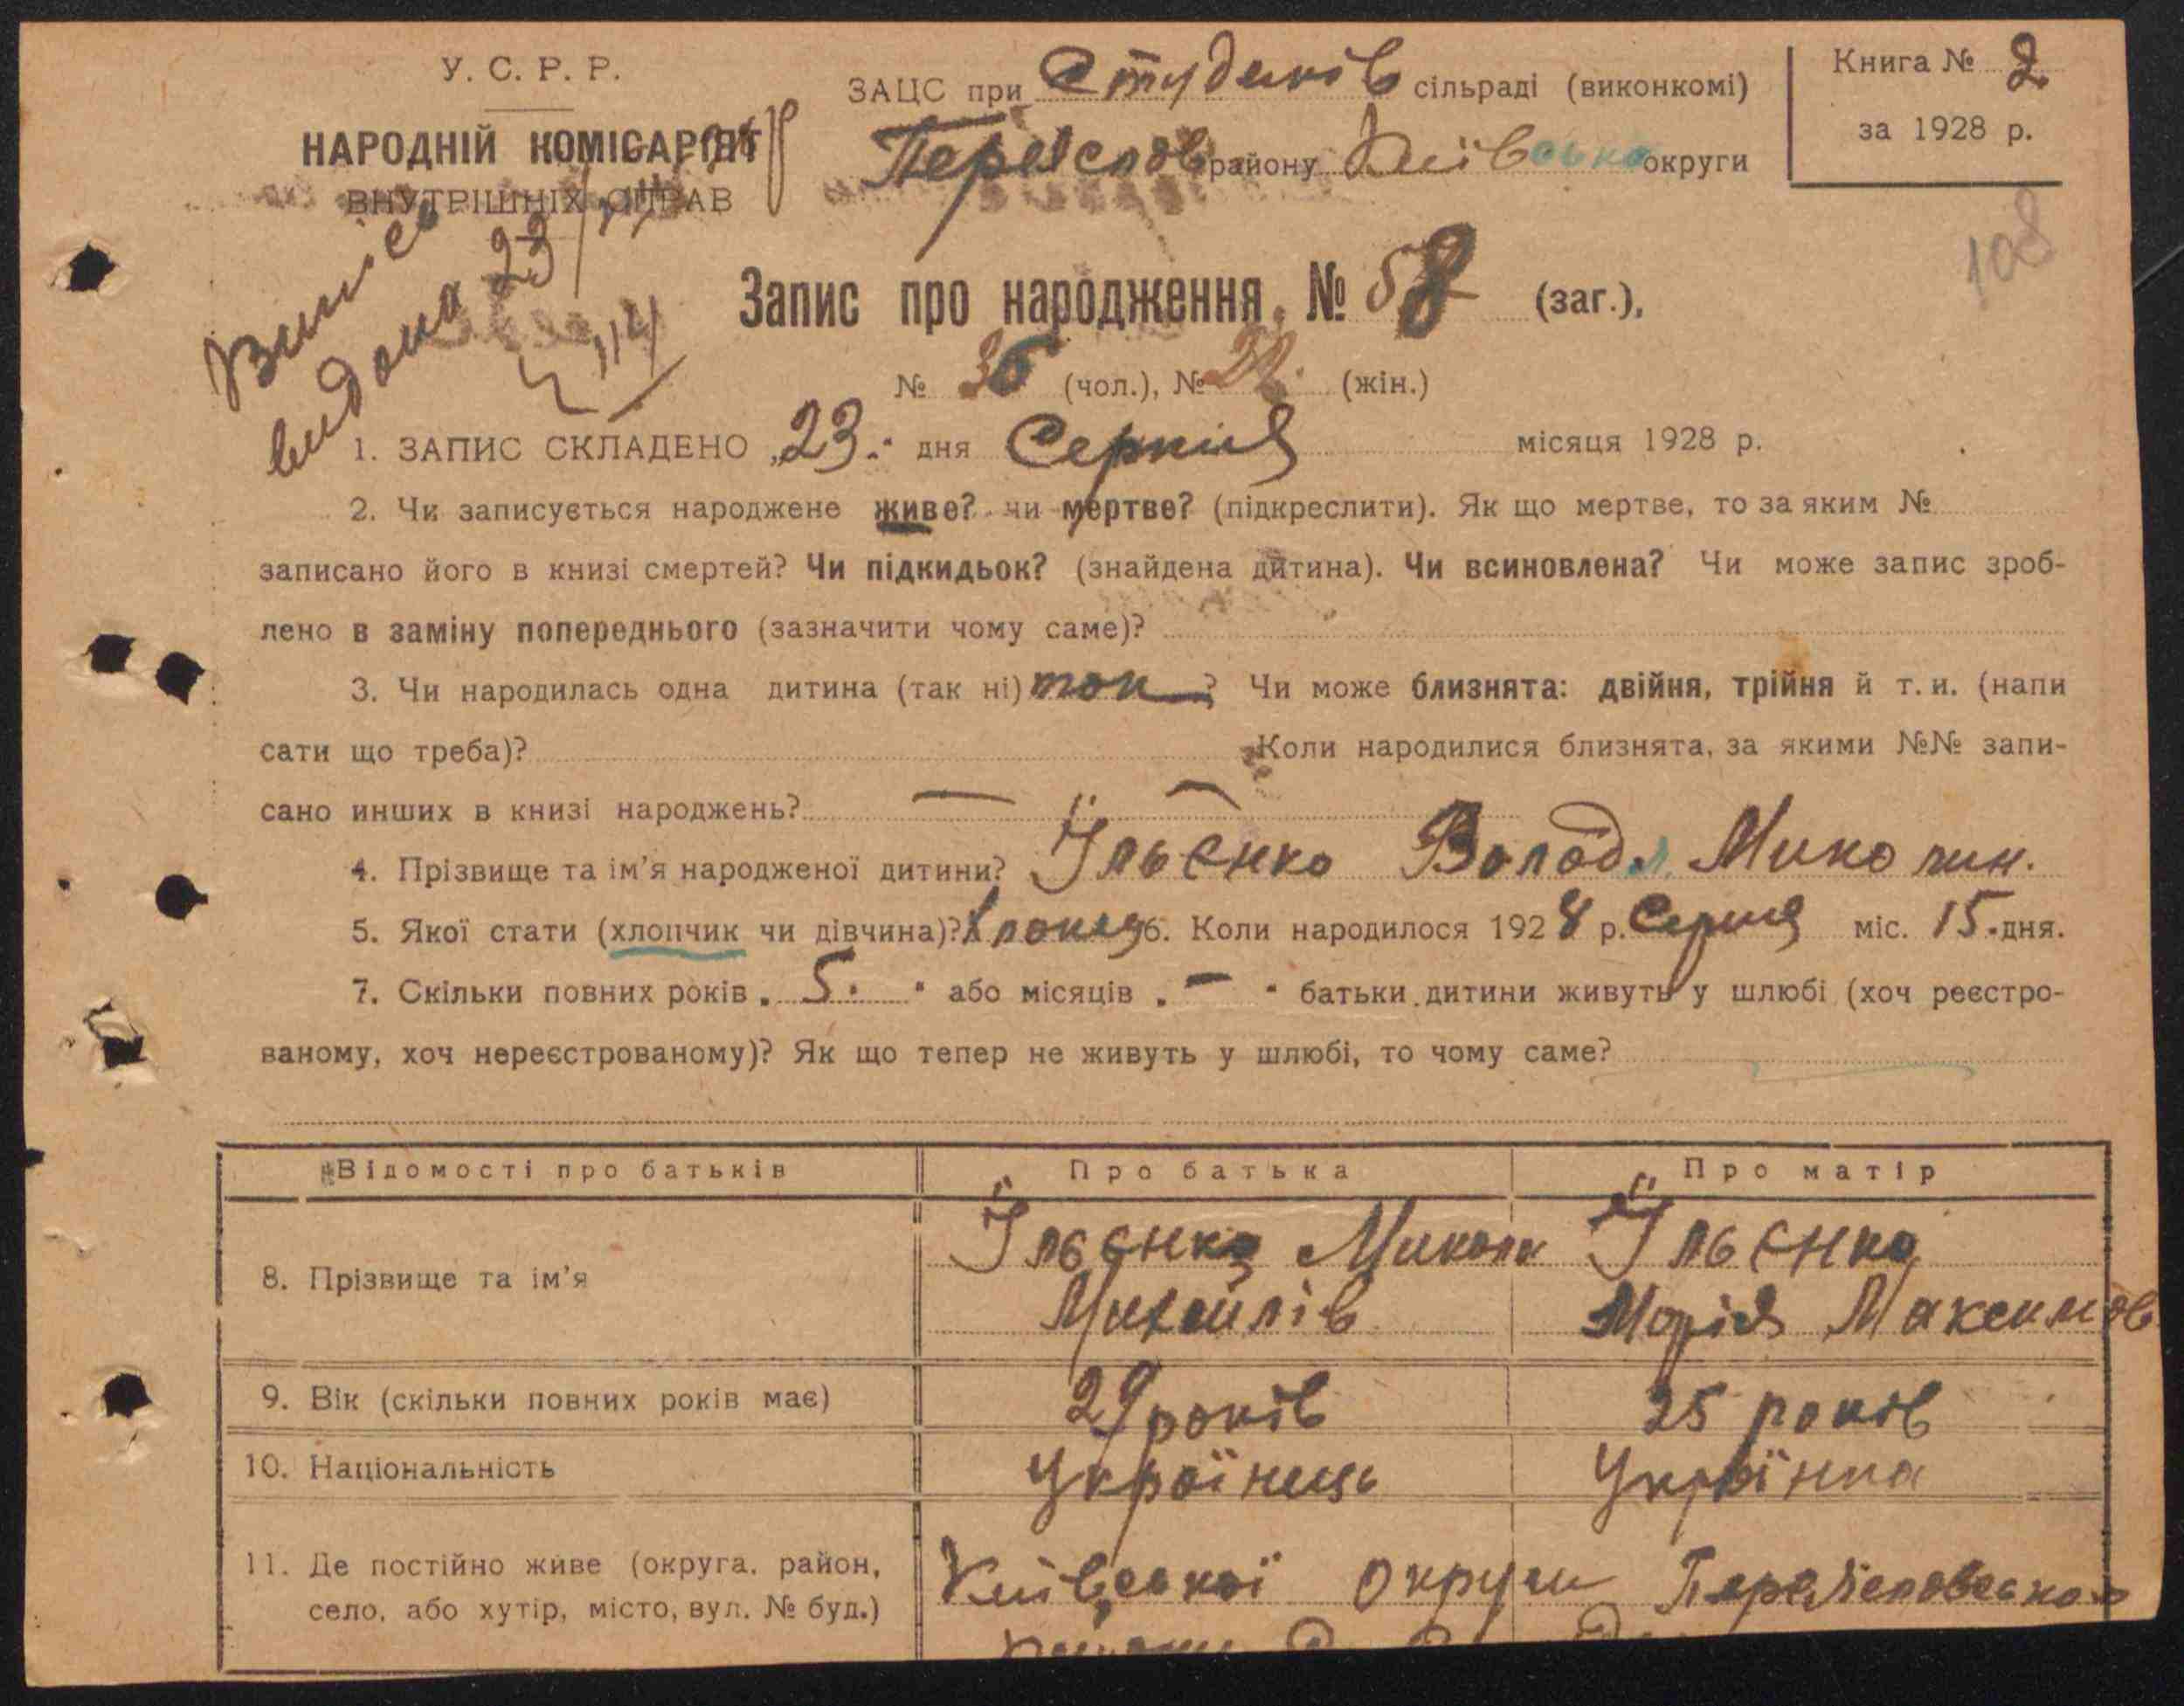 У. С. Р. Р.
НАРОДНІЙ КОМІСАРІЯТ
ВНУТРІШНІХ СПРАВ
ЗАЦС при Студеків сільраді (виконкомі)
Переяслов району Київсько округи
Книга № 2
за 1928 р.
108
Випись
видана 23/
Запис про народження № 58 (заг.),
№ 36 (чол.), № 22. (жін.)
1. ЗАПИС СКЛАДЕНО „23." дня Серпня місяця 1928 р.
2. Чи записується народжене живе? чи мертве? (підкреслити). Як що мертве, то за яким №
записано його в книзі смертей? Чи підкидьок? (знайдена дитина). Чи всиновлена? Чи може запис зроб-
лено в заміну попереднього (зазначити чому саме)?
3. Чи народилась одна дитина (так ні) так ? Чи може близнята: двійня, трійня й т. и. (напи
сати що треба)? Коли народилися близнята, за якими №№ запи-
сано инших в книзі народжень? — —
4. Прізвище та ім'я народженої дитини? Їльєнко Волод. Миколин.
5. Якої стати (хлопчик чи дівчина)? Хлопец 6. Коли народилося 1928 р. Серпня міс. 15. дня.
7. Скільки повних років „ 5. " або місяців „ — " батьки дитини живуть у шлюбі (хоч реєстро-
ваному, хоч нереєстрованому)? Як що тепер не живуть у шлюбі, то чому саме?
Відомості про батьків Про батька Про матір
8. Прізвище та ім'я Їльєнко Микола Михайлів Їльєнко Марія Максимов
9. Вік (скільки повних років має) 29 років 25 років
10. Національність Українець Українка
11. Де постійно живе (округа, район, Київської округи Переясловсько
село, або хутір, місто, вул. № буд.)